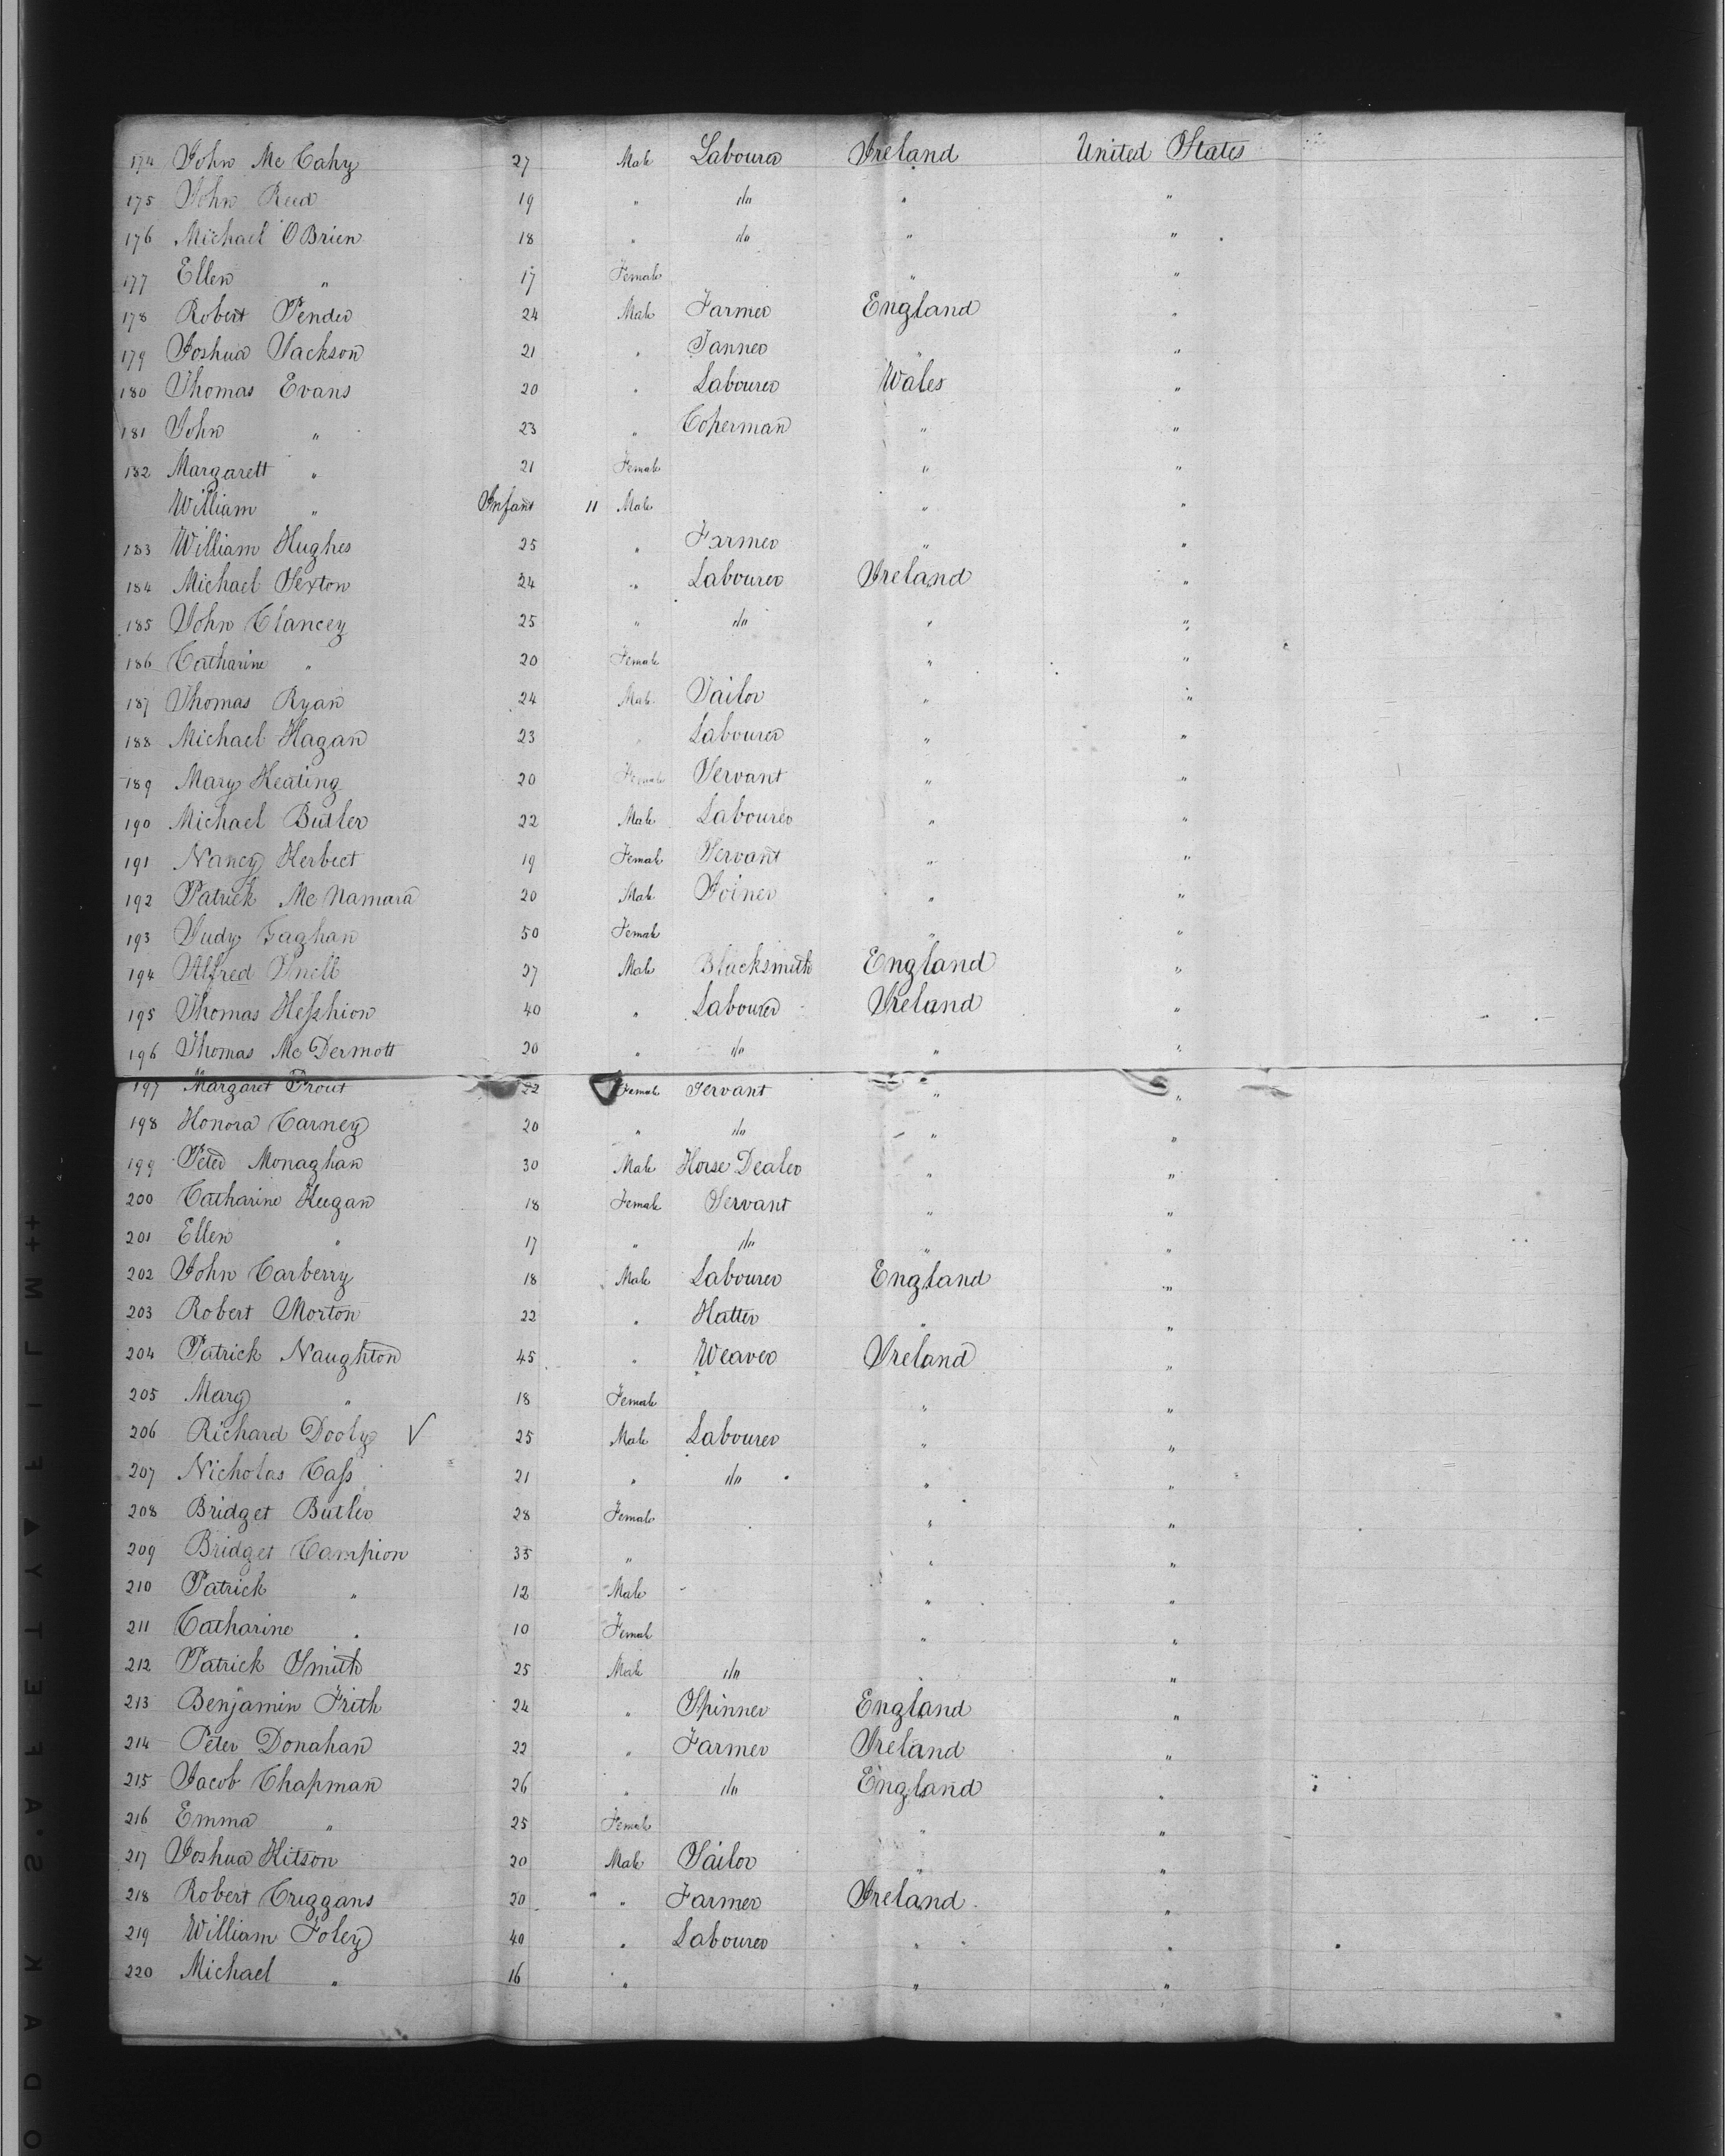 174 John Mc Cahy 27 Male Labourer Ireland United States
175 John Reed 19 " do " "
176 Michael OBrien 18 " do " "
177 Ellen " 17 Female " "
178 Robert Pender 24 Male Farmer England "
179 Joshua Jackson 21 " Tanner " "
180 Thomas Evans 20 " Labourer Wales "
181 John " 23 " Coperman " "
182 Margarett " 21 Female " "
William " Infant 11 Male " "
183 William Hughes 25 " Farmer " "
184 Michael Sexton 24 " Labourer Ireland "
185 John Clancey 25 " do " "
186 Catharine " 20 Female " "
187 Thomas Ryan 24 Male Tailor " "
188 Michael Hagan 23 " Labourer " "
189 Mary Keating 20 Female Servant " "
190 Michael Butler 22 Male Labourer " "
191 Nancy Herbert 19 Female Servant " "
192 Patrick Mc Namara 20 Male Joiner " "
193 Judy Gaghan 50 Female " "
194 Alfred Snell 27 Male Blacksmith England "
195 Thomas Hesshion 40 " Labourer Ireland "
196 Thomas Mc Dermott 20 " do " "
197 Margaret Prout 22 Female Servant " "
198 Honora Carney 20 " do " "
199 Peter Monaghan 30 Male Horse Dealer " "
200 Catharine Keegan 18 Female Servant " "
201 Ellen " 17 " do " "
202 John Carberry 18 Male Labourer England "
203 Robert Morton 22 " Hatter " "
204 Patrick Naughton 45 " Weaver Ireland "
205 Mary " 18 Female " "
206 Richard Dooly ✓ 25 Male Labourer " "
207 Nicholas Cass 21 " do " "
208 Bridget Butler 28 Female " "
209 Bridget Campion 35 " " "
210 Patrick " 12 Male " "
211 Catharine " 10 Female " "
212 Patrick Smith 25 Male do " "
213 Benjamin Frith 24 " Spinner England "
214 Peter Donahan 22 " Farmer Ireland "
215 Jacob Chapman 26 " do England "
216 Emma " 25 Female " "
217 Joshua Kitson 20 Male Tailor " "
218 Robert Criggans 20 " Farmer Ireland "
219 William Foley 40 " Labourer " "
220 Michael " 16 " " "